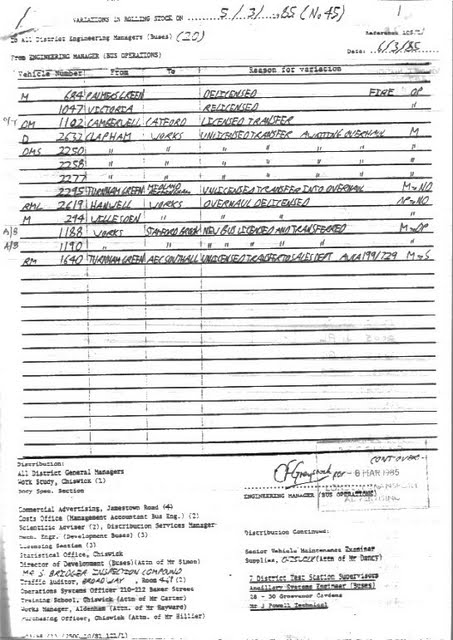 1 VARIATIONS IN ROLLING STOCK ON 5/3/85 (No 45) 1
To All District Engineering Managers (Buses) (20) Reference
From ENGINEERING MANAGER (BUS OPERATIONS) Date: 6/3/85
Vehicle Number From To Reason for variation
M 684 PALMERS GREEN DELICENSED FIRE OP
1047 VICTORIA RELICENSED
DM 1102 CAMBERWELL CATFORD LICENSED TRANSFER
D 2632 CLAPHAM WORKS UNLICENSED TRANSFER AWAITING OVERHAUL M
DMS 2250 " " " " " " "
2258 " " " " " " "
2277 " " " " " " "
2295 TURNHAM GREEN UNLICENSED TRANSFER INTO OVERHAUL M→NO
RML 2619 HANWELL WORKS OVERHAUL DELICENSED OP→NO
M 294 WILLESDEN " " " "
A/B 1188 WORKS STAMFORD BROOK NEW BUS LICENSED AND TRANSFERRED M→OP
A/B 1190 " " " " " " " "
RM 1640 TURNHAM GREEN AEC SOUTHALL UNLICENSED TRANSFER TO SALES DEPT 199/729 M→S
CONT OVER-
Distribution:
All District General Managers
Work Study, Chiswick (1)
Body Spec. Section
for - 8 MAR 1985
ENGINEERING MANAGER (BUS OPERATIONS)
ADVERTISING
Commercial Advertising, Jamestown Road (4)
Costs Office (Management Accountant Bus Eng.) (2)
Scientific Adviser (2), Distribution Services Manager
Mech. Engr. (Development Buses) (3)
Licensing Section (3)
Statistical Office, Chiswick
Director of Development (Buses)(Attn of Mr Simon)
MR S BRIDGER INSPECTION COMPOUND
Traffic Auditor, BROADWAY, Room (2)
Operations Systems Officer 210-212 Baker Street
Training School, Chiswick (Attn of Mr Carter)
Works Manager, Aldenham (Attn of Mr Hayward)
Purchasing Officer, Chiswick (Attn. of Mr Hillier)
Distribution Continued:
Senior Vehicle Maintenance Examiner
Supplies, (Attn of Mr Dancy)
7 District Test Station Supervisors
Ancillary Systems Engineer (Buses)
18 - 30 Grosvenor Gardens
Mr J Powell Technical